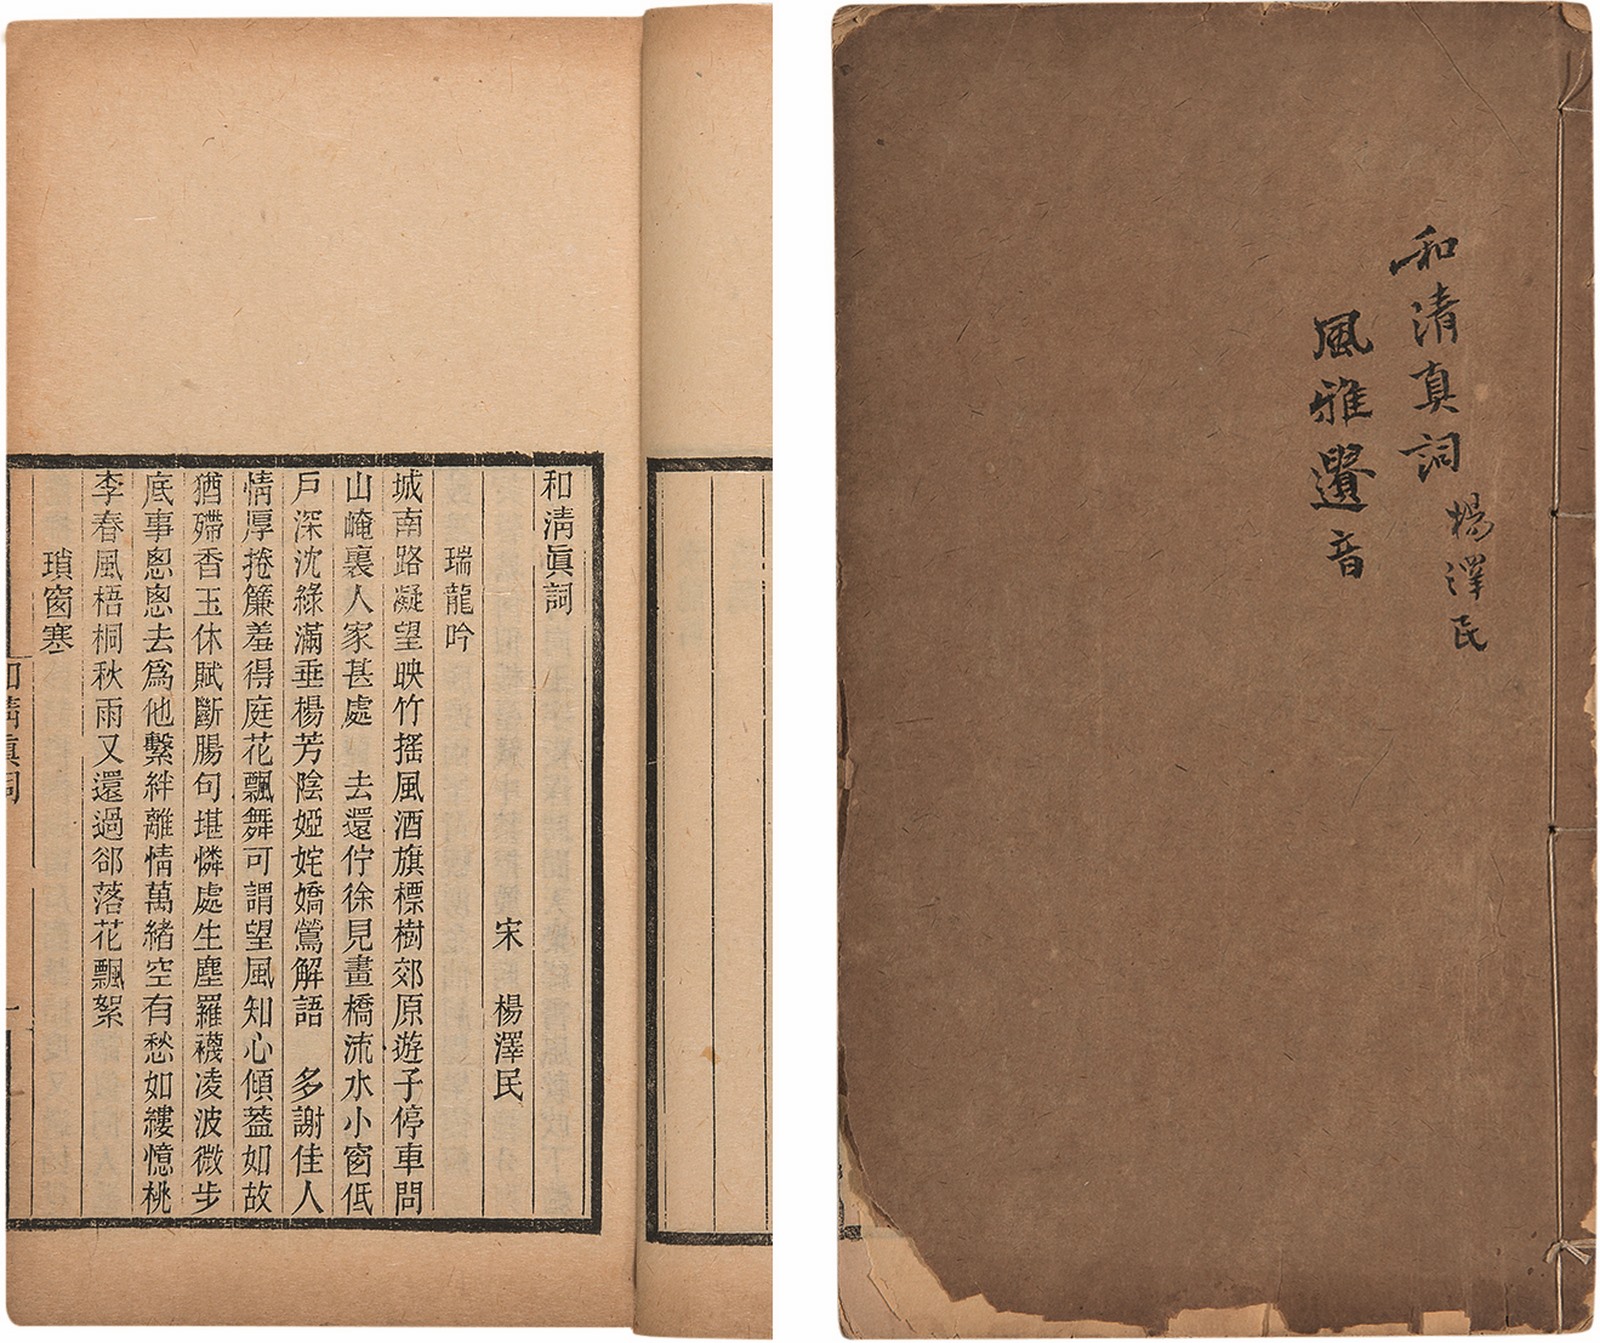 和清真詞
楊澤民
風雅遺音
和淸眞詞
宋 楊澤民
瑞龍吟
城南路凝望映竹搖風酒旗標樹郊原遊子停車問
山崦裏人家甚處 去還佇徐見畫橋流水小窗低
戶深沈綠滿垂楊芳陰婭姹嬌鶯解語 多謝佳人
情厚捲簾羞得庭花飄舞可謂望風知心傾蓋如故
猶殢香玉休賦斷腸句堪憐處生塵羅襪凌波微步
底事悤悤去爲他繫絆離情萬緒空有愁如縷憶桃
李春風梧桐秋雨又還過郤落花飄絮
瑣窗寒
和淸眞詞
一